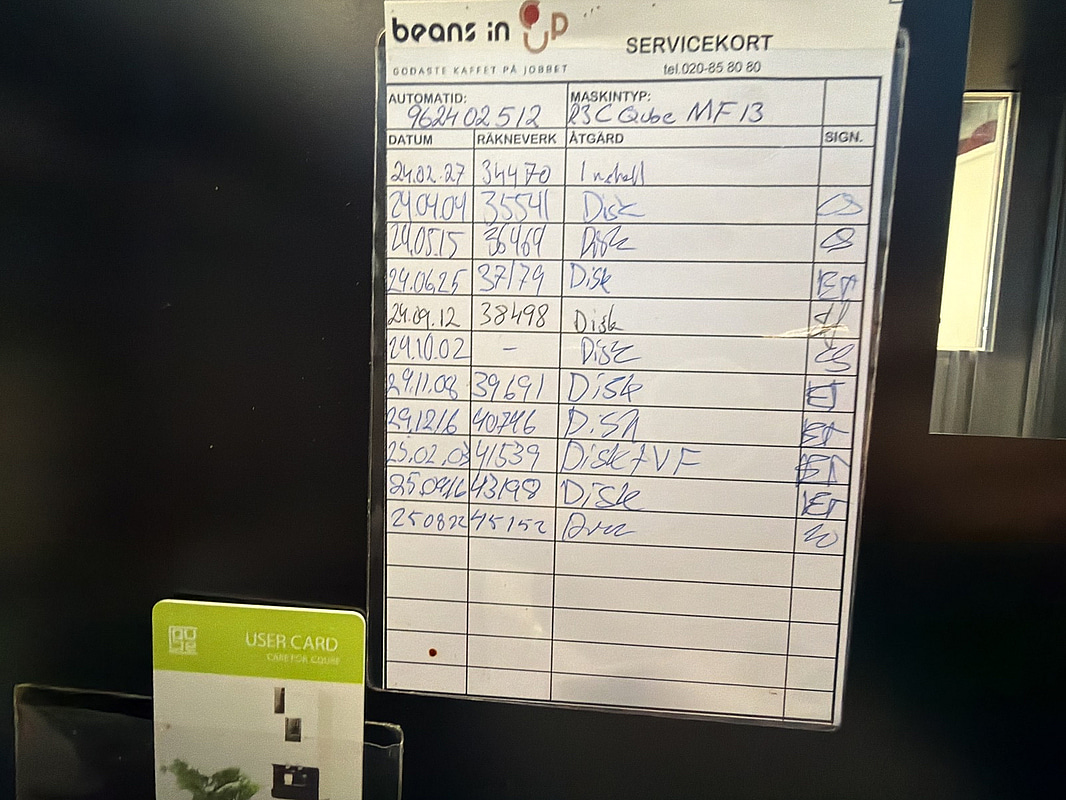 beans in up
GODASTE KAFFET PÅ JOBBET
SERVICEKORT
tel.020-85 80 80
AUTOMATID: MASKINTYP:
962402512 R3C Qube MF13
DATUM RÄKNEVERK ÅTGÄRD SIGN.
24.02.27 34470 Install
24.04.04 35541 Disk
24.05.15 36469 Disk
24.06.25 37179 Disk ET
24.09.12 38498 Disk
24.10.02 - Disk
24.11.08 39691 Disk ET
24.12.16 40746 Disk ET
25.02.03 41539 Disk + VF ET
25.04.16 43198 Disk ET
250822 45152
USER CARD
CARE FOR CQUBE